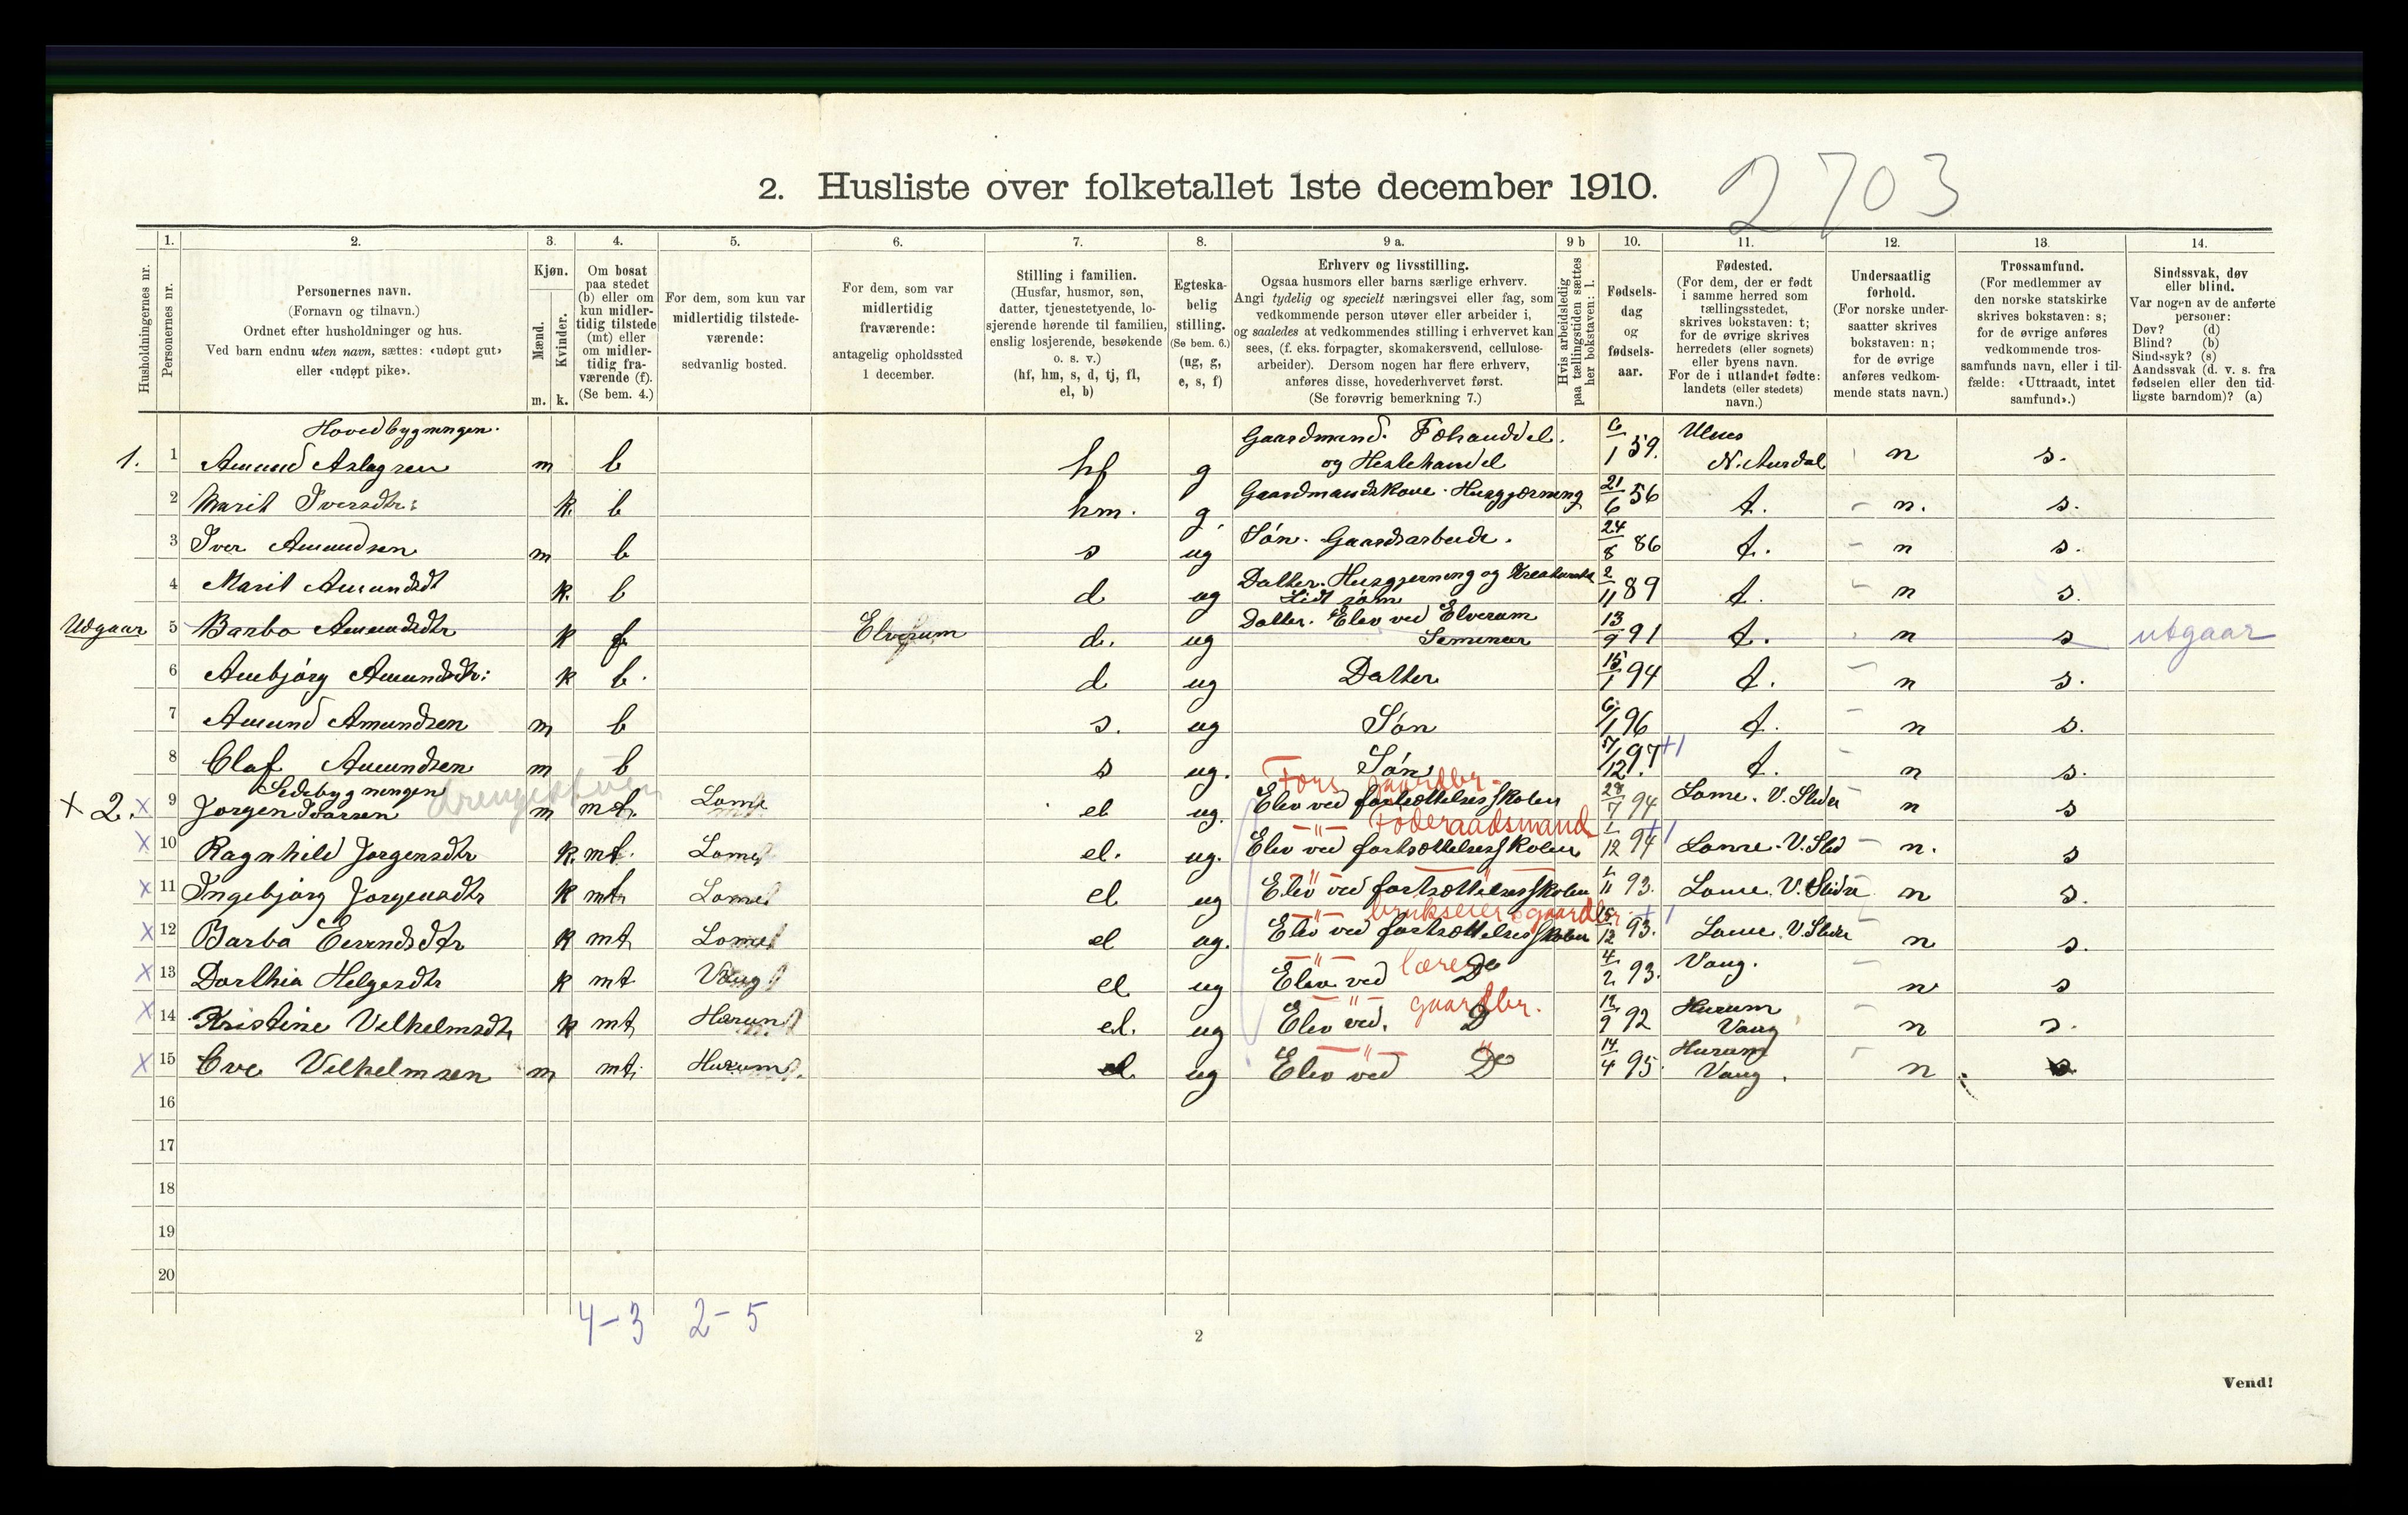 2703
2. Husliste over folketallet 1ste december 1910.
Husholdningernes nr.
1. Personernes nr.
2. Personernes navn.
(Fornavn og tilnavn.)
Ordnet efter husholdninger og hus.
Ved barn endnu uten navn, sættes: «udøpt gut»
eller «udøpt pike».
3. Kjøn.
Mænd. Kvinder.
m. k.
4. Om bosat
paa stedet
(b) eller om
kun midler-
tidig tilstede
(mt) eller
om midler-
tidig fra-
værende (f).
(Se bem. 4.)
5. For dem, som kun var
midlertidig tilstede-
værende:
sedvanlig bosted.
6. For dem, som var
midlertidig
fraværende:
antagelig opholdssted
1 december.
7. Stilling i familien.
(Husfar, husmor, søn,
datter, tjenestetyende, lo-
sjerende hørende til familien,
enslig losjerende, besøkende
o. s. v.)
(hf, hm, s, d, tj, fl,
el, b)
8. Egteska-
belig
stilling.
(Se bem. 6.)
(ug, g,
e, s, f)
9 a. Erhverv og livsstilling.
Ogsaa husmors eller barns særlige erhverv.
Angi tydelig og specielt næringsvei eller fag, som
vedkommende person utøver eller arbeider i,
og saaledes at vedkommendes stilling i erhvervet kan
sees, (f. eks. forpagter, skomakersvend, cellulose-
arbeider). Dersom nogen har flere erhverv,
anføres disse, hovederhvervet først.
(Se forøvrig bemerkning 7.)
9 b Hvis arbeidsledig
paa tællingstiden sættes
her bokstaven: l.
10. Fødsels-
dag
og
fødsels-
aar.
11. Fødested.
(For dem, der er født
i samme herred som
tællingsstedet,
skrives bokstaven: t;
for de øvrige skrives
herredets (eller sognets)
eller byens navn.
For de i utlandet fødte:
landets (eller stedets)
navn.)
12. Undersaatlig
forhold.
(For norske under-
saatter skrives
bokstaven: n;
for de øvrige
anføres vedkom-
mende stats navn.)
13. Trossamfund.
(For medlemmer av
den norske statskirke
skrives bokstaven: s;
for de øvrige anføres
vedkommende tros-
samfunds navn, eller i til-
fælde: «Uttraadt, intet
samfund».)
14. Sindssvak, døv
eller blind.
Var nogen av de anførte
personer:
Døv? (d)
Blind? (b)
Sindssyk? (s)
Aandssvak (d. v. s. fra
fødselen eller den tid-
ligste barndom)? (a)
Hovedbygningen.
1. 1 Amund Aslagsen m b hf g Gaardmand. Fæhanddel. og Hestehandel 6/1 59. Ulnes N. Aurdal n s.
2 Marit Iversdtr: k. b hm. g. Gaardmandskone. Husgjærning 21/6 56 t. n. s.
3 Iver Amundsen m b s ug Søn. Gaardsarbeide. 24/8 86 t. n s.
4 Marit Amundsdt k. b d ug Datter. Husgjerning og Lidt søm 2/11 89 t. n s.
Udgaar 5 Barbo Amundsdtr k f Elverum d. ug Datter. Elev ved Elverum Seminar 13/9 91 t. n s utgaar
6 Ambjørg Amundsdtr: k b. d ug Datter 15/1 94 t. n s.
7 Amund Amundsen m b s. ug Søn 6/1 96 t. n s.
8 Olaf Amundsen m b s ug. Søn 7/12 97 +1 t. n s.
Sidebygningen
Fors. gaardbr.
x 2. x 9 Jørgen Ivarsen m mt. Lome el ug. Elev ved fortsættelsesskolen 28/7 94 Lome. V. Slidre n s
-"- Føderaadsmand
x 10 Ragnhild Jørgensdtr k. mt. Lome el. ug. Elev ved fortsættelsesskolen 1/12 94 +1 Lome. V. Slid n. s
x 11 Ingebjørg Jørgensdtr k mt Lome el ug Elev ved fortsættelsesskolen 1/11 93. Lome. V. Slidre n s.
-"- brukseier gaardbr
x 12 Barbo Eivindsdtr k mt Lome el ug. Elev ved fortsættelsesskolen 15/12 93. +1 Lome. V. Slidre n s.
-"- lærer
x 13 Dorthia Helgesdtr k mt Vang el ug Elev ved Do 4/2 93. Vang. n s
-"- gaardbr.
x 14 Kristine Vilhelmsdtr k mt Hurum el. ug Elev ved. D 12/9 92 Hurum Vang n s.
-"- "
x 15 Ove Vilhelmsen m mt. Hurum el ug Elev ved Do 14/4 95. Hurum Vang. n s
16
17
18
19
20
4-3 2-5
2
Vend!